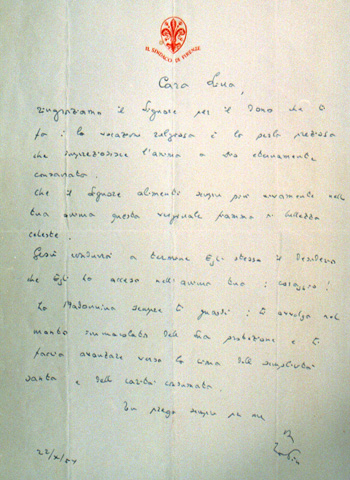 IL SINDACO DI FIRENZE
Cara
ringraziamo il Signore per il dono che ti
fa: la vocazione religiosa è la perla preziosa
che impreziosisce l'anima a Dio eternamente
consacrata.
Che il Signore alimenti sempre più vivamente nella
tua anima questa verginale fiamma di bellezza
celeste.
Gesù condurrà a termine Egli stesso il desiderio
che Egli ha acceso nell'anima tua: coraggio!
La Madonnina sempre ti guardi: ti avvolga nel
manto immacolato della Sua protezione e ti
faccia avanzare verso la cima della semplicità
santa e della carità consumata.
prega sempre per me
22/X/54